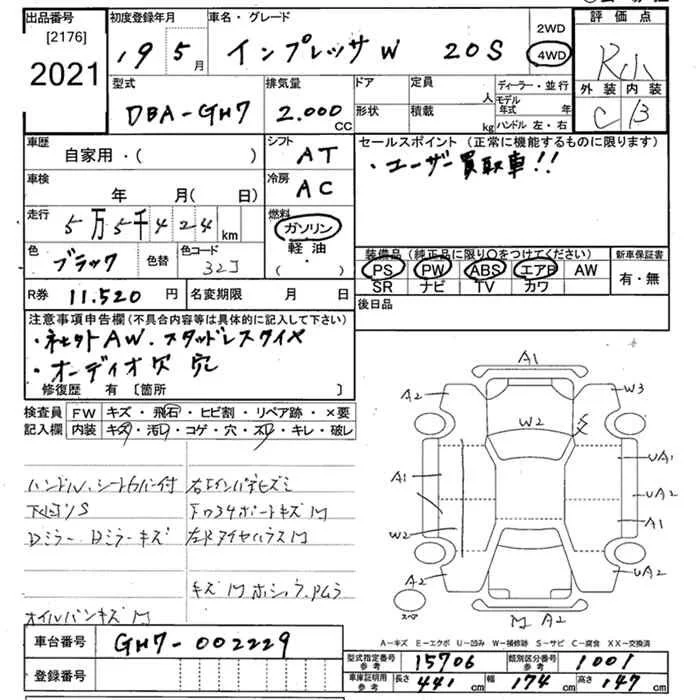 出品番号
[2176]
2021
初度登録年月
19 5月
車名・グレード
インプレッサW 20S
2WD
4WD
評価点
R小
外装 内装
C B
型式
DBA-GH7
排気量
2.000 CC
ドア
形状
定員 人
積載 kg
ディーラー・並行
モデル年式 年
ハンドル 左・右
車歴
自家用・( )
シフト
AT
セールスポイント (正常に機能するものに限ります)
・ユーザー買取車!!
車検
年 月( 日)
冷房
AC
走行
5万5千424km
燃料
ガソリン
軽油
( ・ )
色
ブラック
色替
色コード
32J
装備品 (純正品に限り○をつけてください)
PS PW ABS エアB AW
SR ナビ TV カワ
新車保証書
有・無
R券 11.520円
名変期限 月 日
後日品
注意事項申告欄(不具合内容等は具体的に記入して下さい)
AW.スタッドレスタイヤ
・オーディオ欠 穴
修復歴 有 〔箇所 〕
検査員 FW キズ・飛石・ヒビ割・リペア跡・×要
記入欄 内装 キズ・汚レ・コゲ・穴・スレ・キレ・破レ
ハンドル、シートカバー付
Dミラー キズ
オイルパンキズM
A1
A2
W3
W2
A1
W2
A2
UA1
UA2
A1
UA2
スペア
M A2
A-キズ E-エクボ U-凹み W-補修跡 S-サビ C-腐食 XX-交換済
車台番号 GH7-002229
登録番号
型式指定番号 参考 15706
類別区分番号 参考 1001
車庫証明用 参考 長さ 441cm 幅 174cm 高さ 147cm